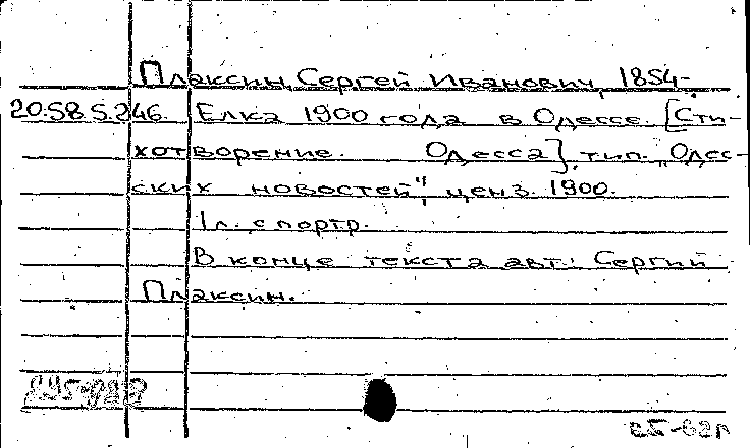 Плаксин, Сергей Иванович, 1854-
20.58.5.246 Елка 1900 года в Одессе. [Сти-
хотворение. Одесса], тип. "Одес-
ских новостей", ценз. 1900.
1л. с портр.
В конце текста авт.: Сергий
Плаксин.